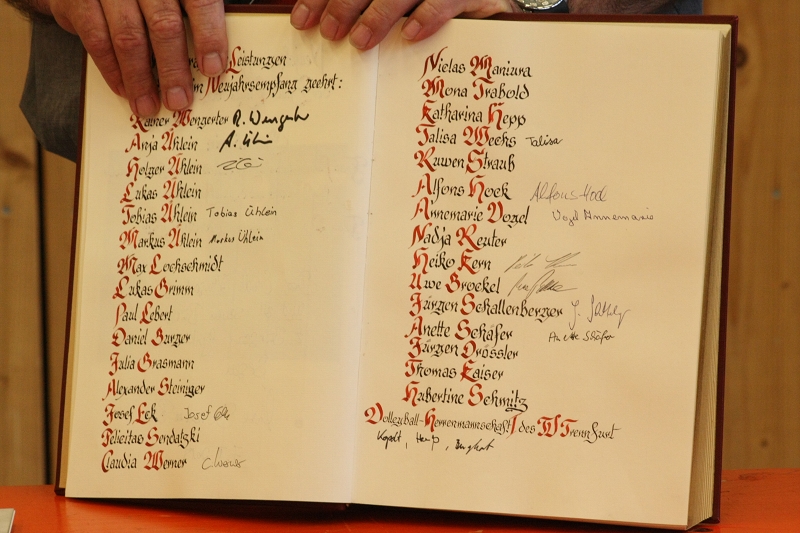 Leistungen
Neujahrsempfang geehrt:
Rainer Wengerter R. Wengerter
Anja Ühlein A. Ühlein
Holger Ühlein
Lukas Ühlein
Tobias Ühlein Tobias Ühlein
Markus Ühlein Markus Ühlein
Max Lochschmidt
Lukas Grimm
Paul Lebert
Daniel Burger
Julia Grasmann
Alexander Steiniger
Josef Eck Josef Eck
Felicitas Sendatzki
Claudia Werner C. Werner
Nielas Maniura
Mona Trabold
Katharina Hepp
Talisa Weeks Talisa
Ruwen Strauß
Alfons Hock Alfons Hock
Annemarie Vogel Vogel Annemarie
Nadja Reuter
Heiko Kern
Uwe Broekel
Jürgen Schallenberger
Anette Schäfer Anette Schäfer
Jürgen Drössler
Thomas Kaiser
Hubertine Schmitz
Volleyball-Herrenmannschaft I des TV Trennfurt